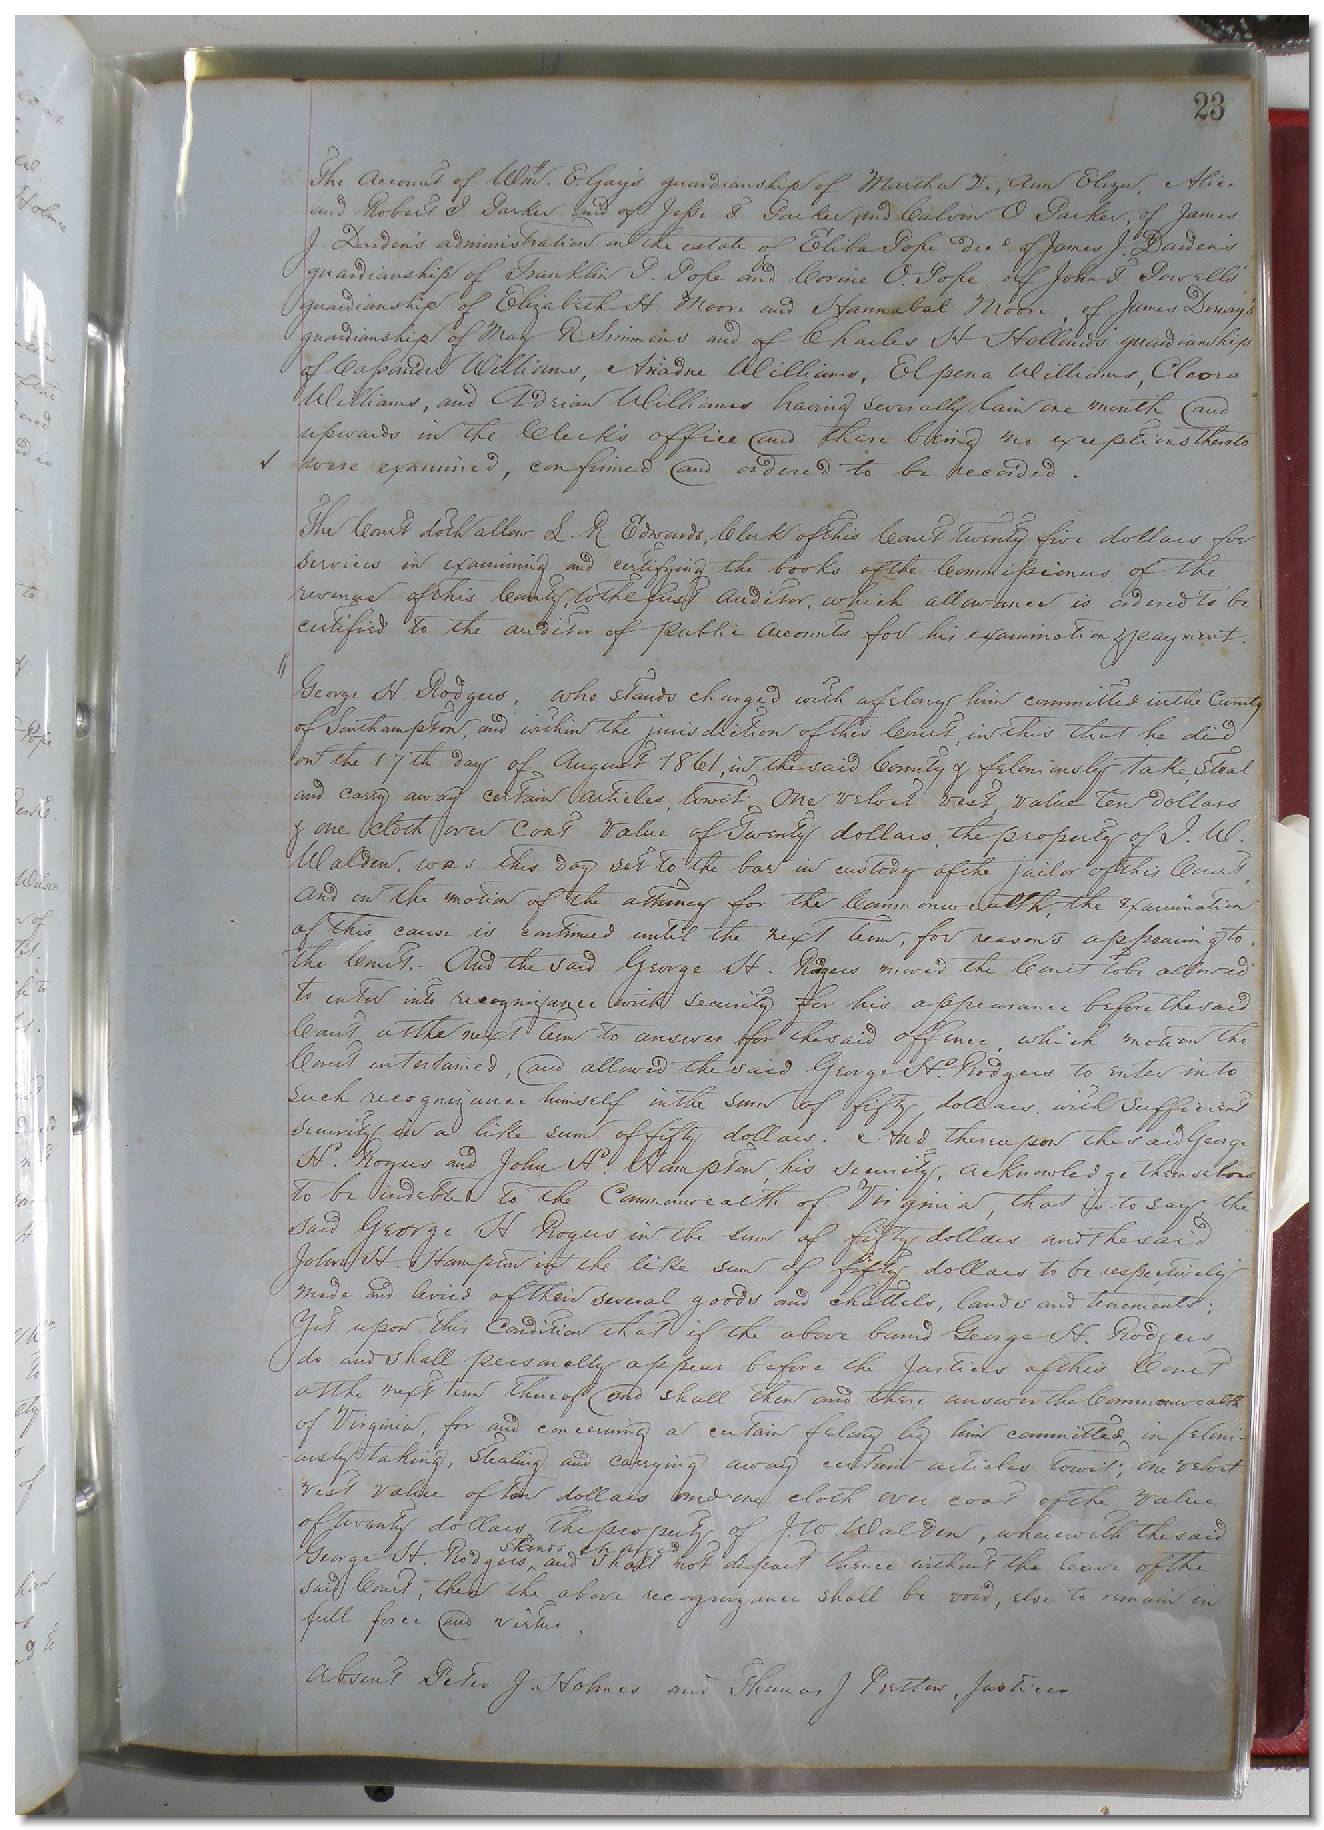 23
The Account of Wm. E. Gay's guardianship of Martha V., Ann Eliza, Alice
and Robert J. Parker and of Jesse T. Parker and Calvin O Parker, of James
J. Darden's administration on the estate of Eliba Pope decd of James J. Darden's
guardianship of Franklin P. Pope and Corine O. Pope of John T. Powell's
guardianship of Elizabeth H. Moore and Hannabal Moore, of James Drewry's
guardianship of May R Simmons and of Charles H Holland's guardianship
of Cassander Williams, Ariadne Williams, Elpena Williams, Cleora
Williams, and Adrian Williams having severally lain one month and
upwards in the Clerk's office and there being no exceptions thereto
were examined, confirmed and ordered to be recorded.
The Court doth allow L. R. Edwards, Clerk of this Court twenty five dollars for
services in examining and certifying the books of the Commissioners of the
revenue of this County, to the first Auditor, which allowance is ordered to be
certified to the auditor of public accounts for his examination & payment.
George H. Rodgers, who stands charged with a felony him committed in the County
of Southampton, and within the jurisdiction of this Court, in this that he did
on the 17th day of August 1861, in the said County & feloniously take, Steal
and carry away certain articles, towit, One velvet vest, value ten dollars
& one cloth over Coat value of Twenty dollars, the property of J. W.
Walden, was this day set to the bar in custody of the jailor of this Court,
and on the motion of the attorney for the Commonwealth, the Examination
of this cause is continued until the next term, for reasons appearing to
the Court.- And the said George H. Rogers moved the Court to be allowed
to enter into recognizance with security for his appearance before the said
Court at the next term to answer for the said offence, which motion the
Court entertained, and allowed the said George H. Rodgers to enter into
such recognizance himself in the sum of fifty dollars with sufficient
security in a like sum of fifty dollars. And thereupon the said George
H. Rogers and John H. Hampton, his security, acknowledge themselves
to be indebted to the Commonwealth of Virginia, that is to say, the
said George H Rogers in the sum of fifty dollars and the said
John H. Hampton in the like sum of fifty dollars to be respectively
made and levied of their several goods and chattels, lands and tenements;
Yet upon this Condition that if the above bound George H. Rodgers
do and shall personally appear before the Justices of this Court
at the next term thereof and shall then and there answer the Commonwealth
of Virginia, for and concerning a certain felony by him committed, in feloni-
ously taking, Stealing and carrying away certain articles towit; one velvet
vest value of ten dollars and one cloth over coat of the value
of twenty dollars, the property of J. W. Walden, wherewith the said
George H. Rodgers stands charged and shall not depart thence without the leave of the
said Court, then the above recognizance shall be void, else to remain in
full force and virtue.
Absent Peter J. Holmes and Thomas J Pretlow, Justices